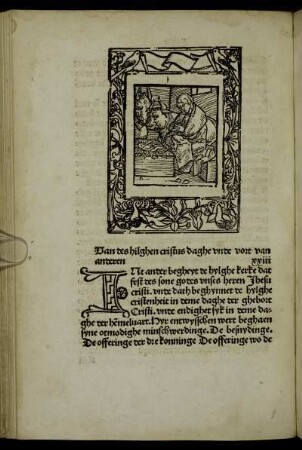 Van des hilghen cristus daghe vnde vort van
anderen xxiii
INt ander begheyt de hylghe kerke dat
fest des sone godes vnses heren Jhesu
cristi. vnde dath beghynnet de hylghe
cristenheit in deme daghe der ghebort
Cristi. vnde endighet syk in deme da-
ghe der hemeluart. Hyr entwysschen wert beghaen
syne otmodighe minschwerdinge. De besnydinge.
De offeringe der drie konninge De offeringe wo de